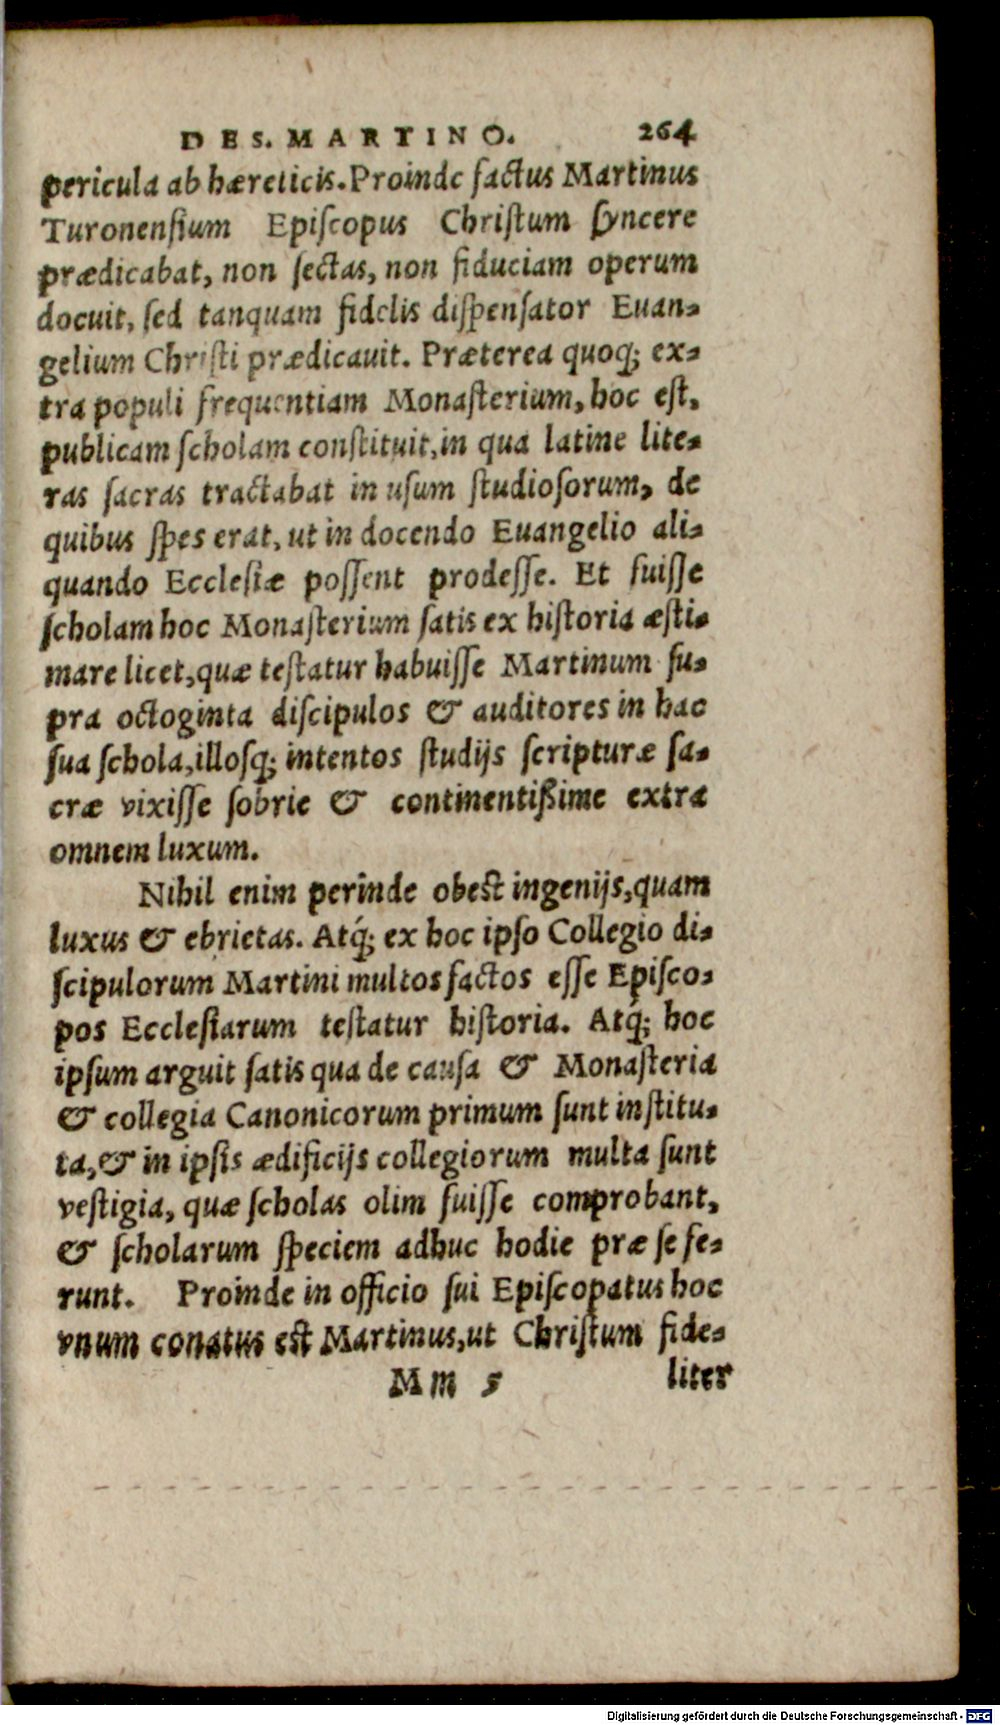 DE S. MARTINO. 264
pericula ab hæreticis. Proinde factus Martinus
Turonensium Episcopus Christum syncere
prædicabat, non sectas, non fiduciam operum
docuit, sed tanquam fidelis dispensator Euan-
gelium Christi prædicauit. Præterea quoq; ex-
tra populi frequentiam Monasterium, hoc est,
publicam scholam constituit, in qua latine lite-
ras sacras tractabat in usum studiosorum, de
quibus spes erat, ut in docendo Euangelio ali-
quando Ecclesiæ possent prodesse. Et fuisse
scholam hoc Monasterium satis ex historia æsti-
mare licet, quæ testatur habuisse Martinum su-
pra octoginta discipulos & auditores in hac
sua schola, illosq; intentos studijs scripturæ sa-
cræ vixisse sobrie & continentißime extra
omnem luxum.
Nihil enim perinde obest ingenijs, quam
luxus & ebrietas. Atq́; ex hoc ipso Collegio di-
scipulorum Martini multos factos esse Episco-
pos Ecclesiarum testatur historia. Atq́; hoc
ipsum arguit satis qua de causa & Monasteria
& collegia Canonicorum primum sunt institu-
ta, & in ipsis ædificijs collegiorum multa sunt
vestigia, quæ scholas olim fuisse comprobant,
& scholarum speciem adhuc hodie præ se fe-
runt. Proinde in officio sui Episcopatus hoc
vnum conatus est Martinus, ut Christum fide-
Mm 5 liter
Digitalisierung gefördert durch die Deutsche Forschungsgemeinschaft - DFG